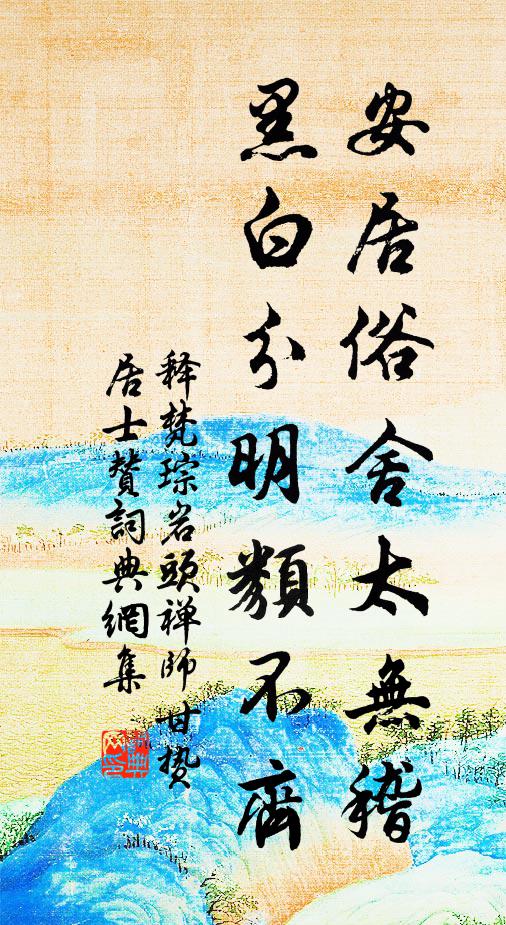 安居俗舍太無稽
黑白分明類不齊
释梵琮岩頭禅师甘贽
居士贊詞典網集